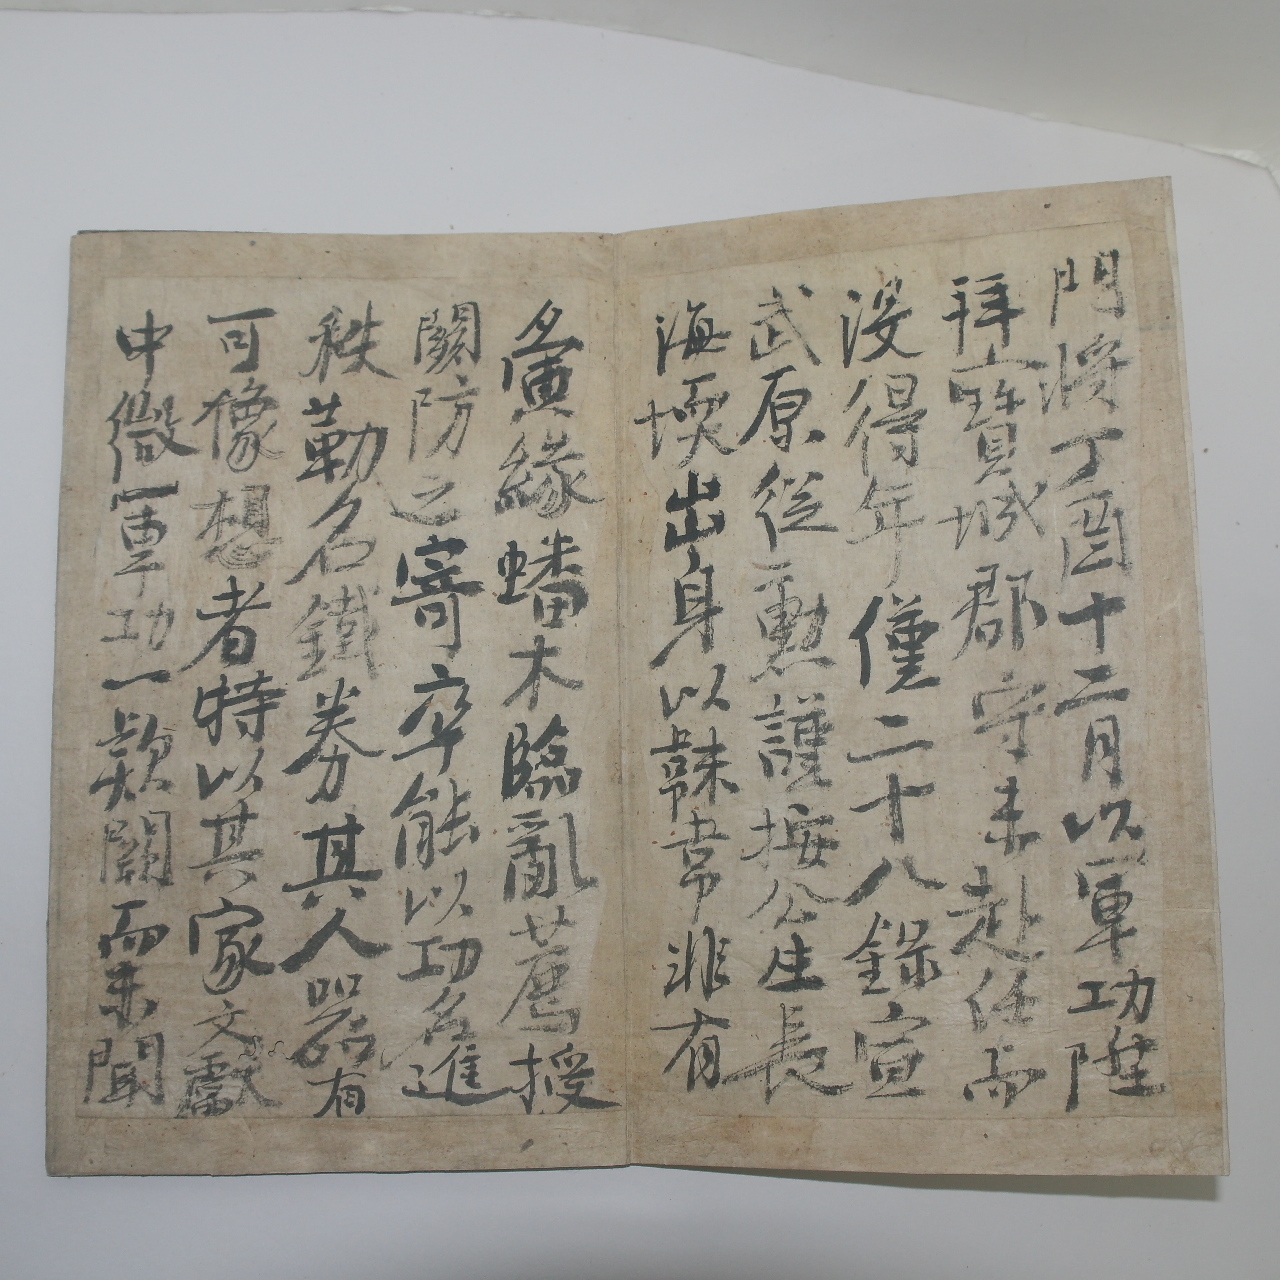 門將丁酉十二月以軍功陞
拜寶城郡守未赴任而
沒得年僅二十八錄宣
武原從勳謹按公生長
海堧出身以韎韋非有
夤緣蟠木臨亂薦授
關防之寄卒能以功名進
秩勒名鐵券其人器有
可像想者特以其家文獻
中微軍功一款闕而未聞